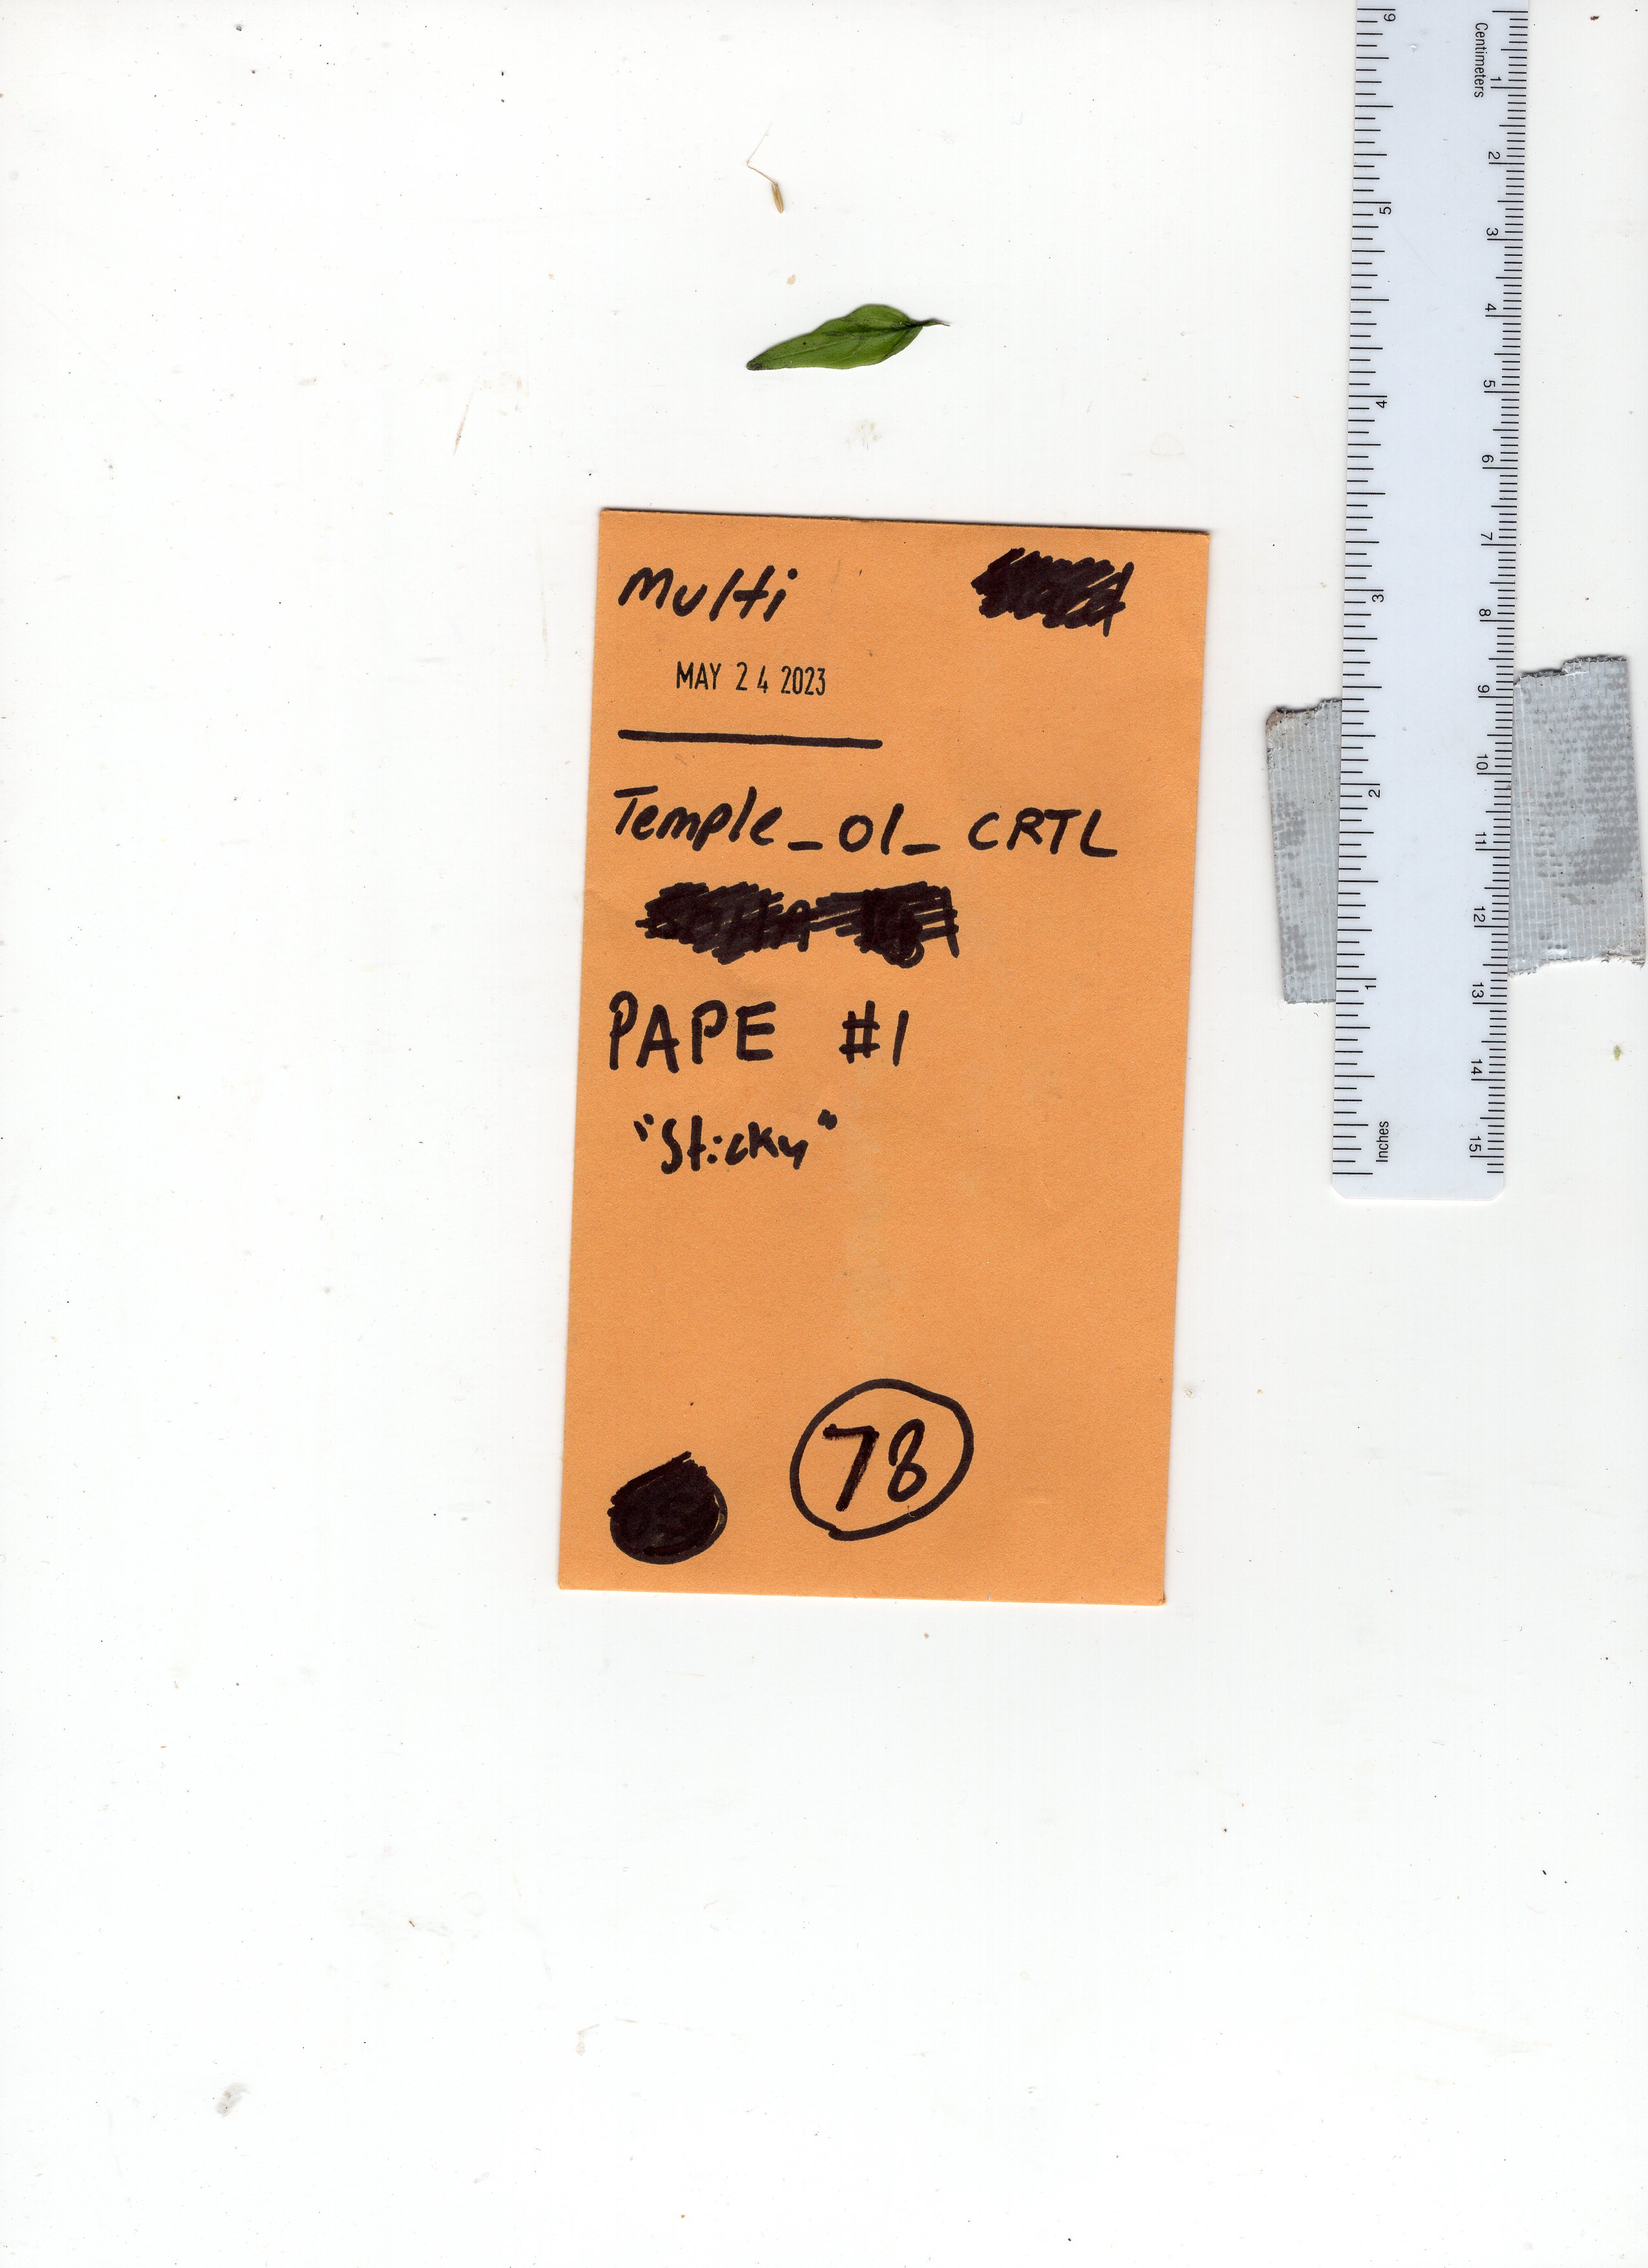 Multi
MAY 24 2023
Temple_01_CRTL
PAPE #1
"Sticky"
78
Centimeters
1
2
3
4
5
6
7
8
9
10
11
12
13
14
15
6
5
4
3
2
1
Inches